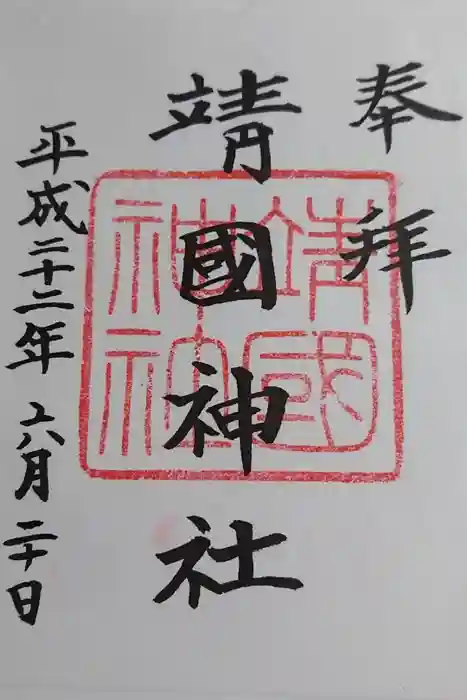 奉拝
靖國神社
平成二十二年六月二十日
靖國
神社